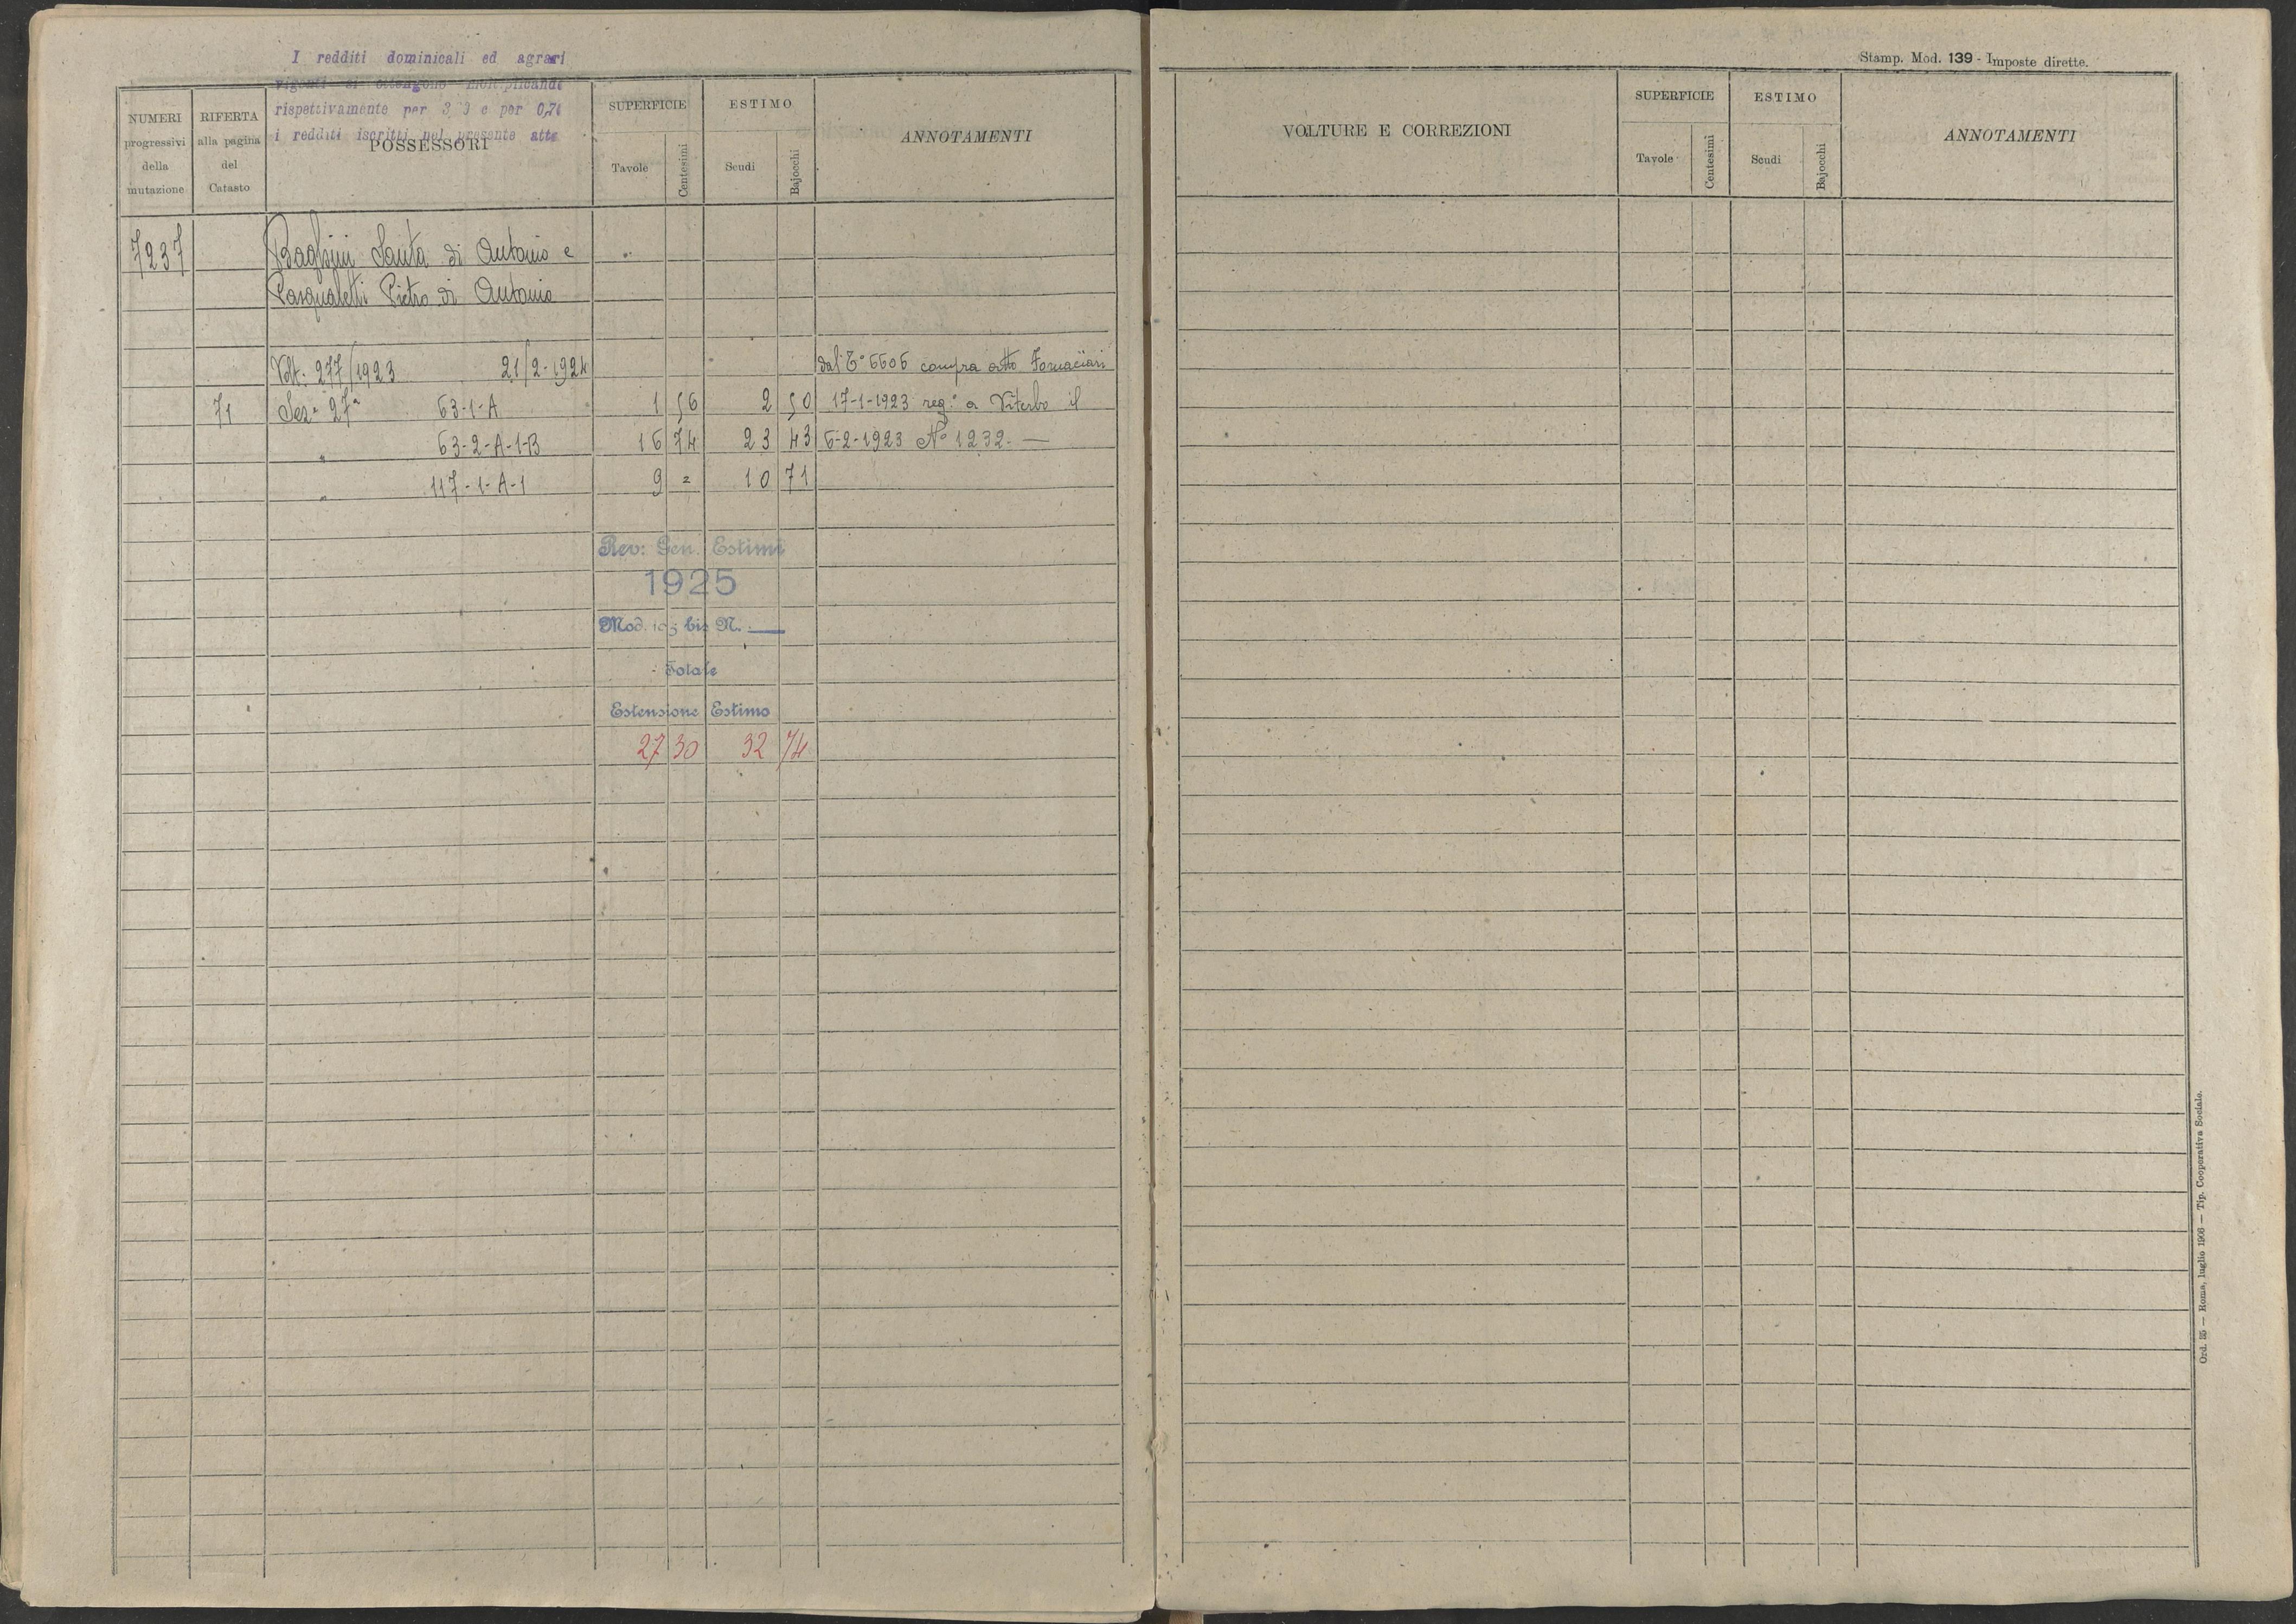 I redditi dominicali ed agrari
vigenti si ottengono moltiplicando
rispettivamente per 3 3 e per 0,70
i redditi iscritti nel presente atto
NUMERI progressivi della mutazione
RIFERTA alla pagina del Catasto
POSSESSORI
SUPERFICIE
Tavole
Centesimi
ESTIMO
Scudi
Bajocchi
ANNOTAMENTI
7237 Baghini Santa di Antonio e
Pasqualetti Pietro di Antonio
Volt. 277/1923 21/2-1924 dal T° 6606 compra atto Fornaciari
71 Sez.ª 27ª 63-1-A 1 56 2 50 17-1-1923 reg.° a Viterbo il
" 63-2-A-1-B 16 74 23 43 6-2-1923 N° 1232. —
" 117-1-A-1 9 = 10 71
Rev: Gen. Estimi
1925
Mod. 103 bis N. —
Totale
Estensione Estimo
27 30 32 74
Stamp. Mod. 139 - Imposte dirette.
VOLTURE E CORREZIONI
SUPERFICIE
Tavole
Centesimi
ESTIMO
Scudi
Bajocchi
ANNOTAMENTI
Ord. 35 — Roma, luglio 1906 — Tip. Cooperativa Sociale.